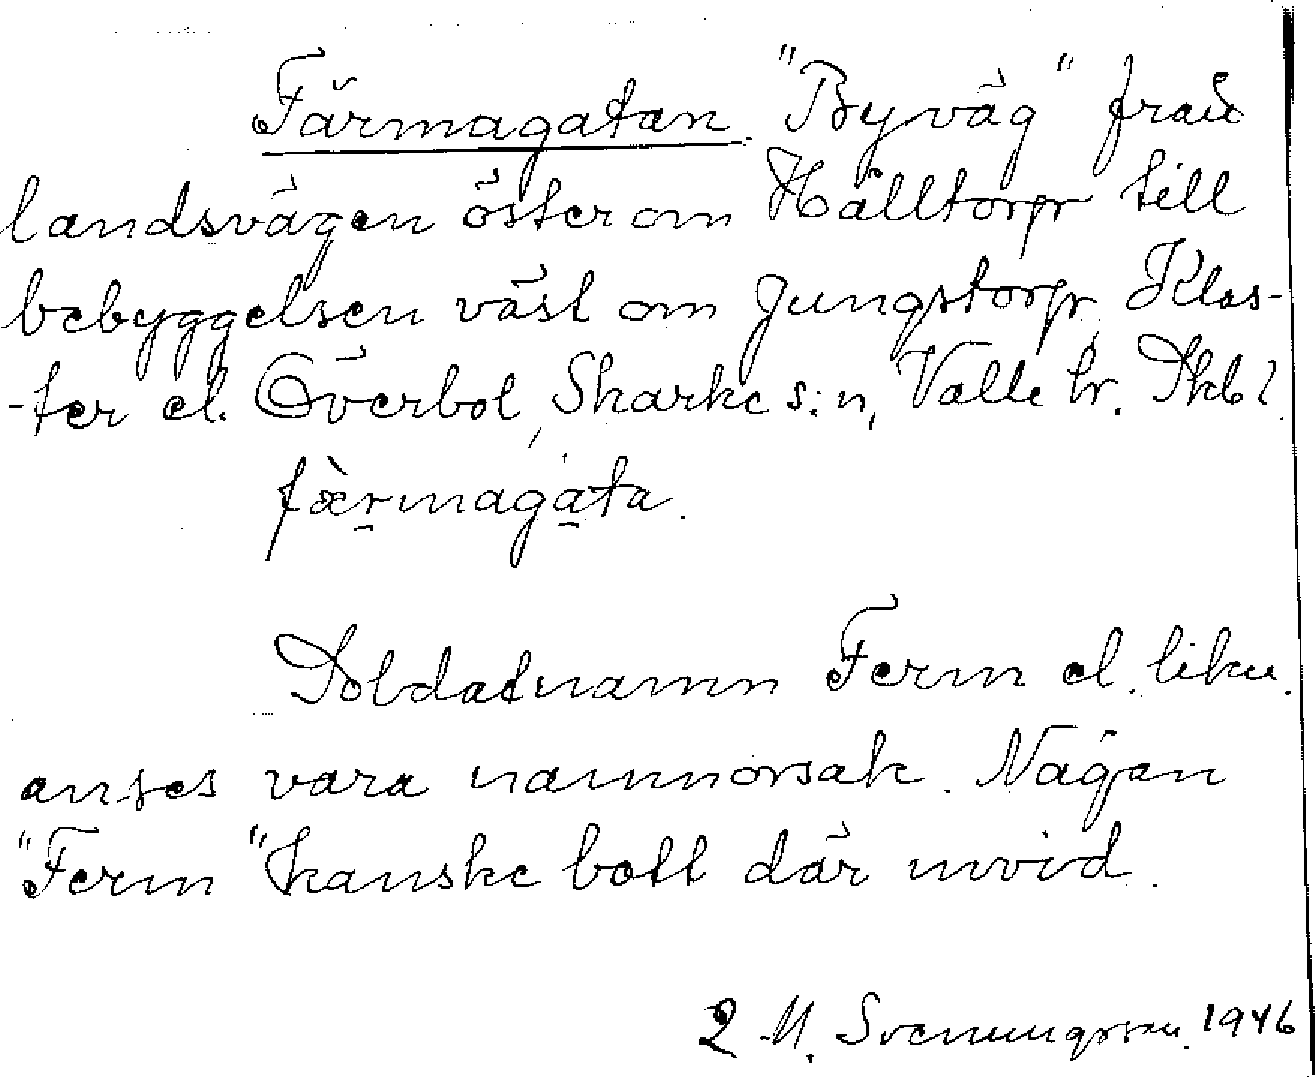 Färmagatan. "Byväg" från
landsvägen öster om Hälltorp till
bebyggelsen väst om Jungstorp, Klos-
-ter el. Överbol, Skarke s:n, Valle hr. Skbl.
fæ̀rmagáta.
Soldatnamn Ferm el. likn.
anses vara namnorsak. Någon
"Ferm" kanske bott där invid.
2 M. Svenungsson. 1946